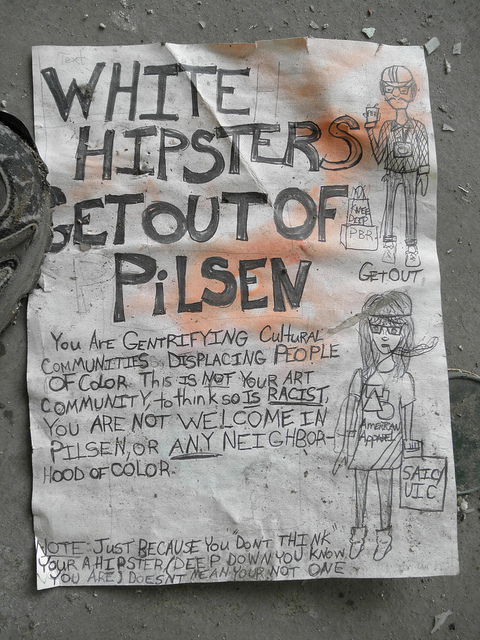 WHITE
HIPSTERS
GET OUT OF
PILSEN
KNEE
DEEP
PBR
GET OUT
YOU ARE GENTRIFYING CULTURAL
COMMUNITIES DISPLACING PEOPLE
OF COLOR. THIS IS NOT YOUR ART
COMMUNITY, to think so IS RACIST.
YOU ARE NOT WELCOME IN
PILSEN, OR ANY NEIGHBOR-
HOOD OF COLOR.
AMERICAN
Apparel
SAIC/
UIC
NOTE: JUST BECAUSE YOU "DONT THINK"
YOUR A HIPSTER, (DEEP DOWN YOU KNOW
YOU ARE) DOESN'T MEAN YOUR NOT ONE.